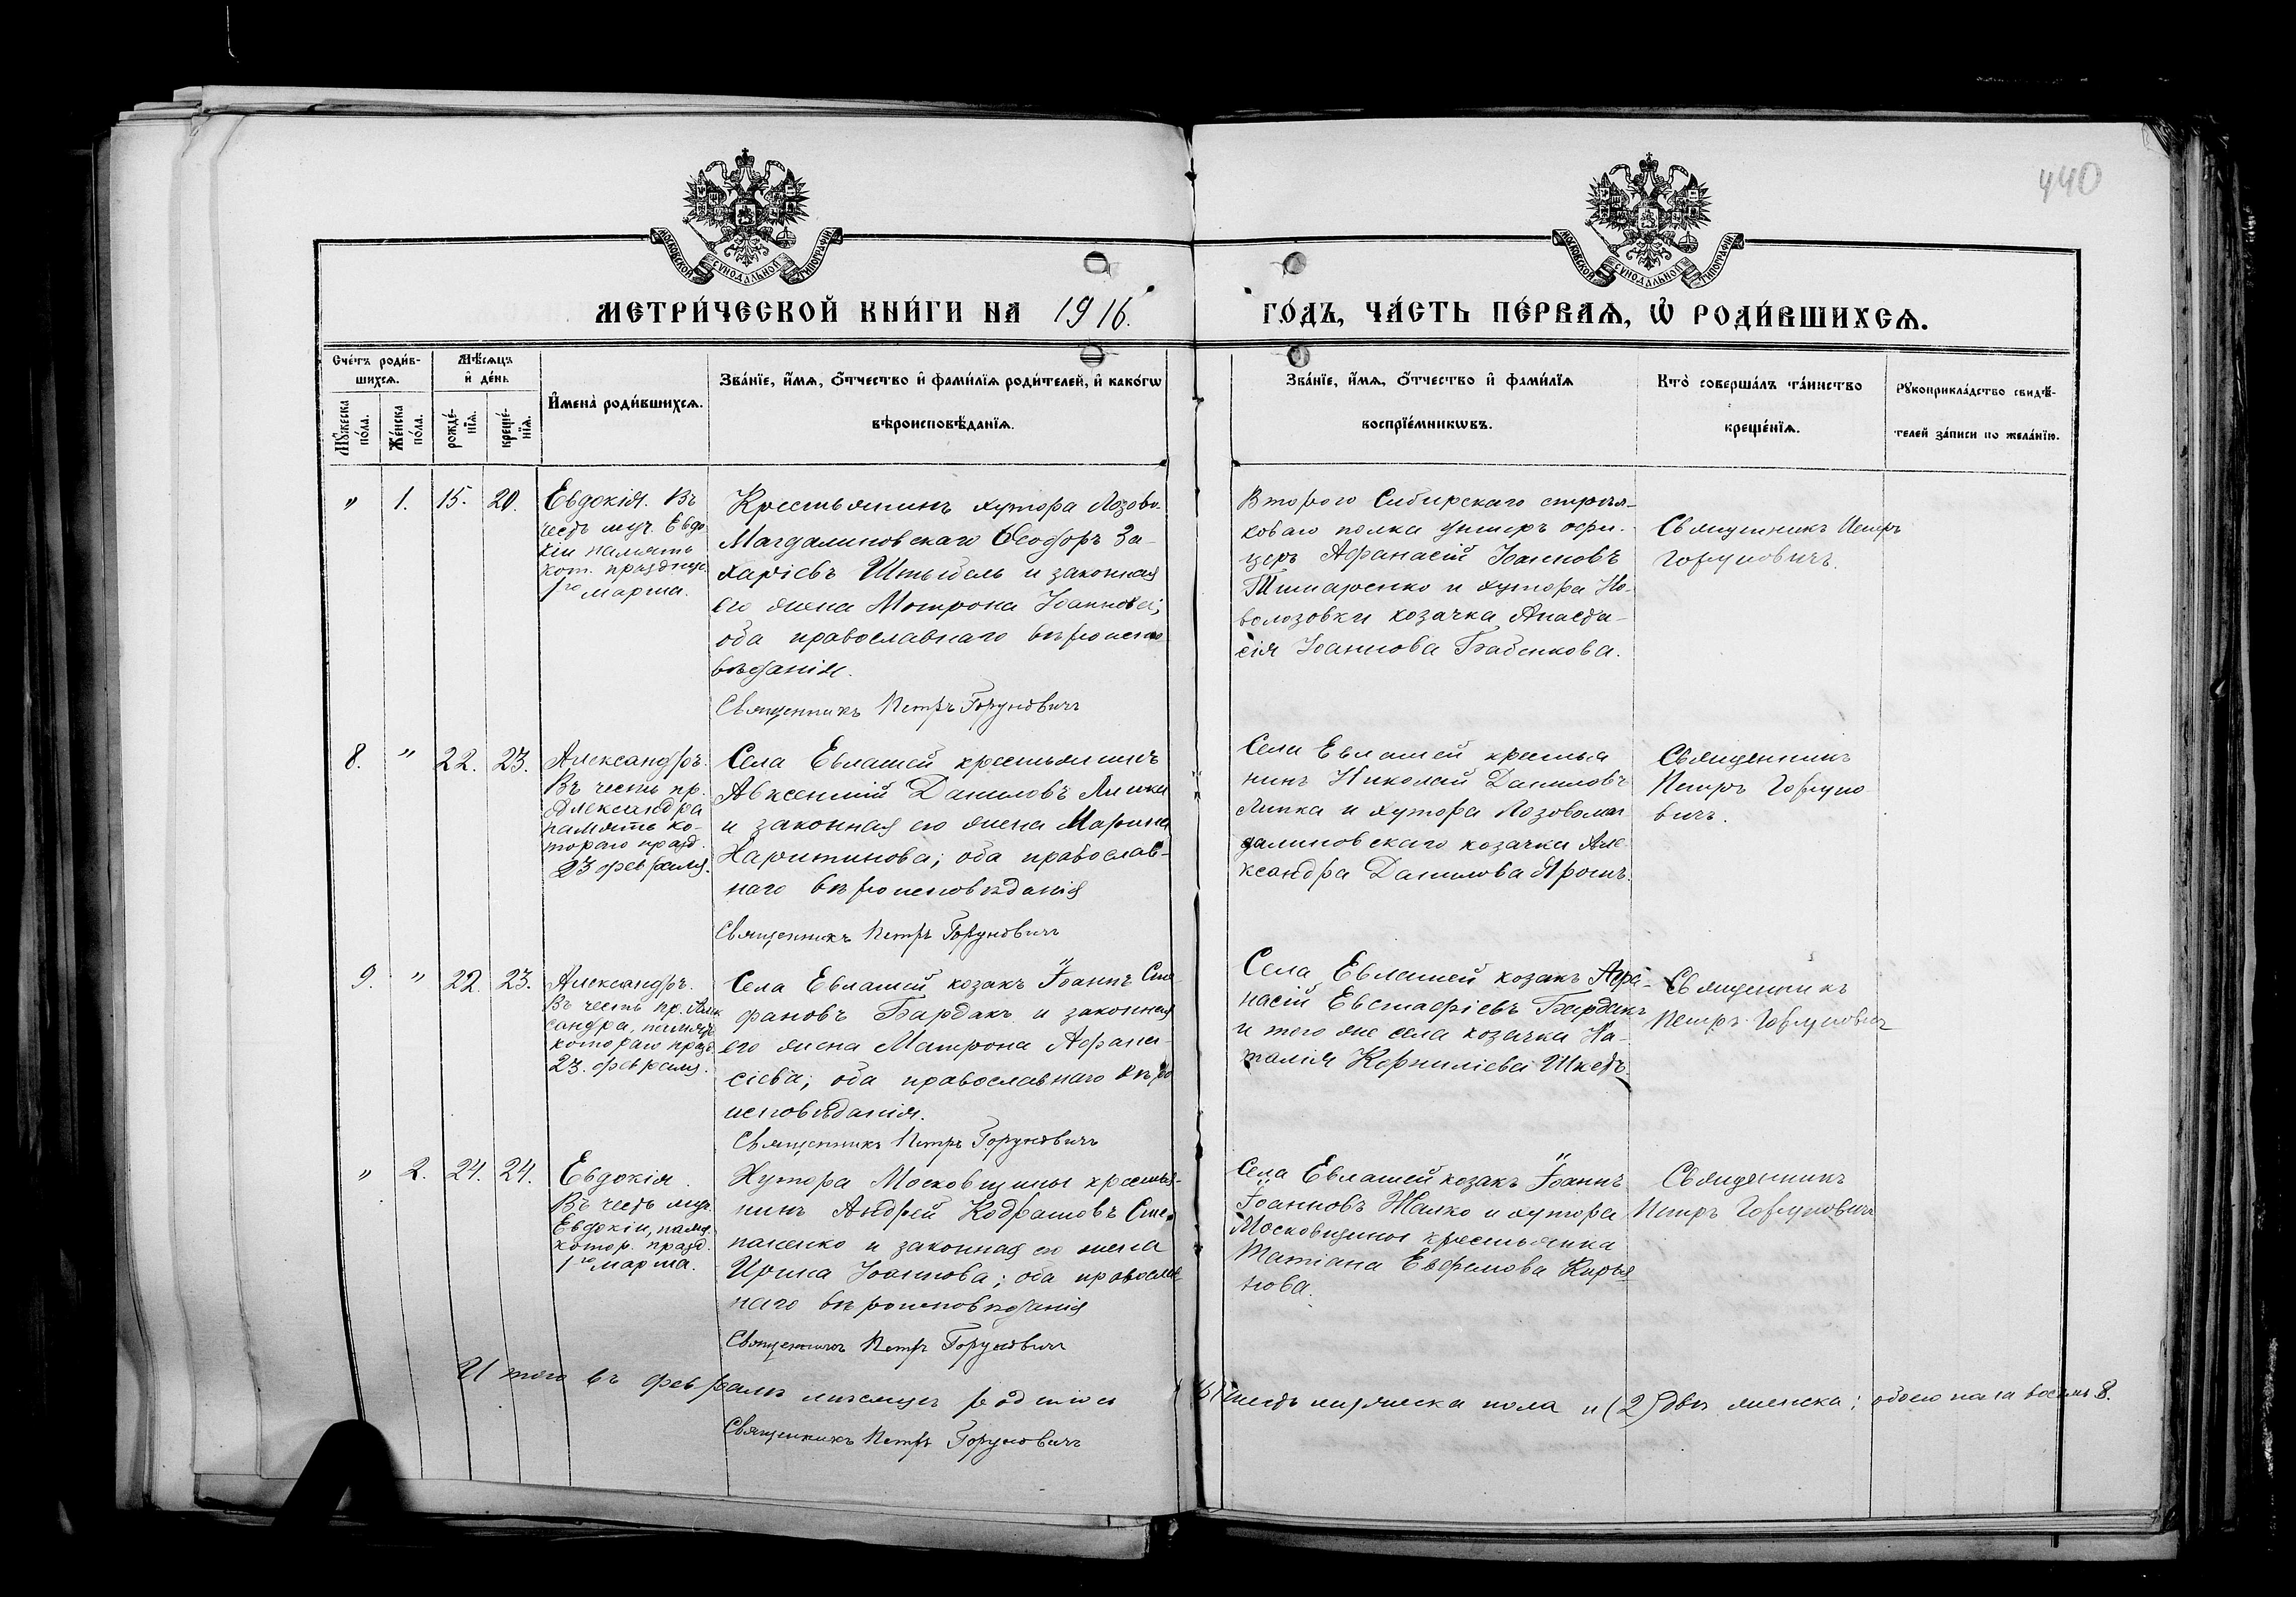 440
МОСКОВСКОЙ СѴНОДАЛЬНОЙ ТИПОГРАФІИ
МОСКОВСКОЙ СѴНОДАЛЬНОЙ ТИПОГРАФІИ
МЕТРИ́ЧЕСКОЙ КНИ́ГИ НА 1916.
ГО́ДЪ, ЧА́СТЬ ПЕ́РВАѦ, Ѡ РОДИ́ВШИХСѦ.
Сче́тъ роди́в-
шихсѧ.
Мѣ́сѧцъ
и де́нь
Мꙋ́жеска по́ла.
Же́нска по́ла.
рожде́-нїѧ.
креще́-нїѧ.
И҆мена̀ роди́вшихсѧ.
Зва́нїе, и҆́мѧ, ѻ҆́тчество и҆ фами́лїѧ роди́телей, и҆ како́гѡ
вѣроисповѣ́данїѧ.
Зва́нїе, и҆́мѧ, ѻ҆́тчество и҆ фами́лїѧ
воспрїе́мникѡвъ.
Кто̀ соверша́лъ та́инство
креще́нїѧ.
Рꙋкоприкла́дство свидѣ́-
телей за́писи по жела́нїю.
" 1. 15. 20.
Евдокія. Въ
честь муч. Евдо
кіи память
кот. празднует.
1го марта.
Крестьянинъ хутора Лозово-
Магдалиновскаго Ѳеодоръ За-
харіевъ Штыбель и законная
его жена Мотрона Іоаннова;
оба православнаго вѣроиспо
вѣданія.
Священникъ Петръ Горуновичъ
Второго Сибирскаго стрѣл-
коваго полка унтеръ офи-
церъ Афанасій Іоанновъ
Тимаренко и хутора Но-
волозовки козачка Анаста-
сія Іоаннова Бабенкова.
Священникъ Петръ
Горуновичъ.
8. " 22. 23.
Александръ.
Въ честь пр.
Александра
память ко-
тораго празд.
23 февраля.
Села Евлашей крестьянинъ
Авксентій Даниловъ Липка
и законная его жена Марина
Харитинова; оба православ-
наго вѣроисповѣданія
Священникъ Петръ Горуновичъ
Села Евлашей крестья
нинъ Николай Даниловъ
Липка и хутора Лозовомаг
далиновскаго козачка Але
ксандра Данилова Ярошъ.
Священникъ
Петръ Горуно
вичъ.
9. " 22. 23.
Александръ.
Въ честь пр. Алек
сандра, память
котораго празд.
23. февраля.
Села Евлашей козакъ Іоаннъ Сте
фановъ Бардакъ и законная
его жена Матрона Афана-
сіева; оба православнаго вѣро
исповѣданія.
Священникъ Петръ Горуновичъ
Села Евлашей козакъ Афа-
насій Евстафіевъ Бардакъ
и того же села козачка На-
талія Корниліева Шкетъ.
Священникъ
Петръ Горуновичъ
" 2. 24. 24.
Евдокія.
Въ честь муч.
Евдокіи, памят.
котор. празд.
1го марта.
Хутора Московщины крестья-
нинъ Андрей Кодратовъ Сте-
паненко и законная его жена
Ирина Іоаннова; оба православ
наго вѣроисповѣданія
Священникъ Петръ Горуновичъ
Села Евлашей козакъ Іоаннъ
Іоанновъ Жалко и хутора
Московщины крестьянка
Татіана Ефремова Кирья
нова.
Священникъ
Петръ Горуновичъ
Итого въ февралѣ мѣсяцѣ родилось (6) шесть мужеска пола и (2) двѣ женска; обоего пола восемь 8.
Священникъ Петръ Горуновичъ